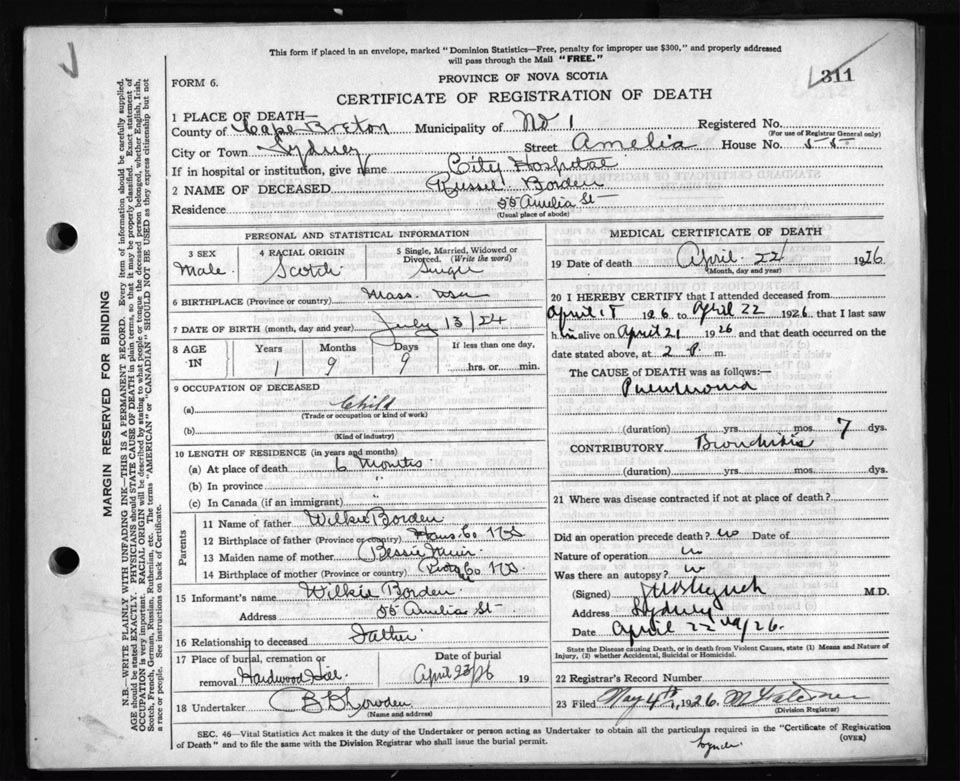 This form if placed in an envelope, marked "Dominion Statistics—Free, penalty for improper use $300," and properly addressed
will pass through the Mail "FREE."
311
FORM 6.
PROVINCE OF NOVA SCOTIA
CERTIFICATE OF REGISTRATION OF DEATH
1 PLACE OF DEATH—
County of Cape Breton Municipality of No 1 Registered No.
(For use of Registrar General only)
City or Town Sydney Street Amelia House No. 55
If in hospital or institution, give name City Hospital
2 NAME OF DECEASED Russel Borden
Residence 55 Amelia St
(Usual place of abode)
PERSONAL AND STATISTICAL INFORMATION
3 SEX Male
4 RACIAL ORIGIN Scotch
5 Single, Married, Widowed or Divorced. (Write the word) Single
6 BIRTHPLACE (Province or country) Mass. USA
7 DATE OF BIRTH (month, day and year) July 13/24
8 AGE IN Years 1 Months 9 Days 9 If less than one day, hrs. or min.
9 OCCUPATION OF DECEASED
(a) Child
(Trade or occupation or kind of work)
(b)
(Kind of industry)
10 LENGTH OF RESIDENCE (in years and months)
(a) At place of death 6 Months
(b) In province "
(c) In Canada (if an immigrant) "
Parents
11 Name of father Wilkie Borden
12 Birthplace of father (Province or country) Hans. Co NS
13 Maiden name of mother Bessie
14 Birthplace of mother (Province or country) Co NS
15 Informant's name Wilkie Borden
Address 55 Amelia St
16 Relationship to deceased Father
17 Place of burial, cremation or removal Hardwood Hill
Date of burial April 23/26 19
18 Undertaker
(Name and address)
MEDICAL CERTIFICATE OF DEATH
19 Date of death April 22 1926
(Month, day and year)
20 I HEREBY CERTIFY that I attended deceased from
April 15 1926 to April 22 1926. that I last saw
him alive on April 21 1926 and that death occurred on the
date stated above, at 2 P m.
The CAUSE of DEATH was as follows:—
Pneumonia
(duration) yrs. mos. 7 dys.
CONTRIBUTORY Bronchitis
(duration) yrs. mos. dys.
21 Where was disease contracted if not at place of death?
Did an operation precede death? no Date of
Nature of operation no
Was there an autopsy? no
(Signed) M.D.
Address Sydney
Date April 22nd/26.
State the Disease causing Death, or in death from Violent Causes, state (1) Means and Nature of
Injury, (2) whether Accidental, Suicidal or Homicidal.
22 Registrar's Record Number
23 Filed May 4th, 1926.
(Division Registrar)
SEC. 46—Vital Statistics Act makes it the duty of the Undertaker or person acting as Undertaker to obtain all the particulars required in the "Certificate of Registration
of Death" and to file the same with the Division Registrar who shall issue the burial permit.
(OVER)
MARGIN RESERVED FOR BINDING
N.B.—WRITE PLAINLY WITH UNFADING INK—THIS IS A PERMANENT RECORD. Every item of information should be carefully supplied.
AGE should be stated EXACTLY. PHYSICIANS should STATE CAUSE OF DEATH in plain terms, so that it may be properly classified. Exact statement of
OCCUPATION is very important. RACIAL ORIGIN will be described by stating to what people or tongue the deceased person belonged, whether English, Irish,
Scotch, French, German, Russian, Ruthenian, etc. The terms "AMERICAN" or "CANADIAN" SHOULD NOT BE USED as they express citizenship but not
a race or people. See instructions on back of Certificate.